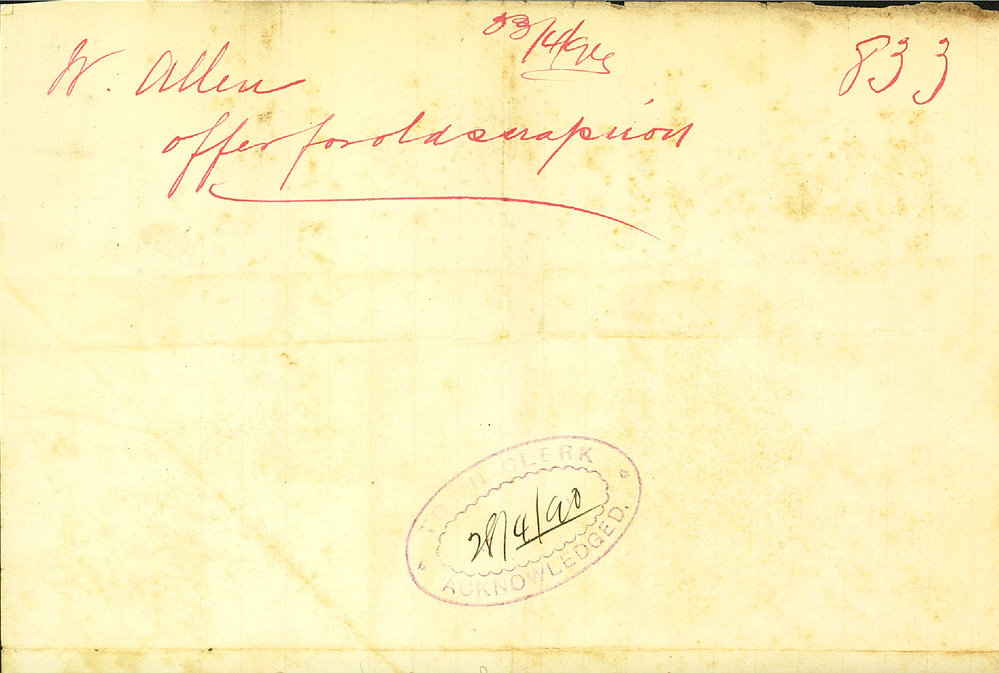 23/4/90
833
W. Allen
offer for old scrap iron
TOWN CLERK
28/4/90
ACKNOWLEDGED.